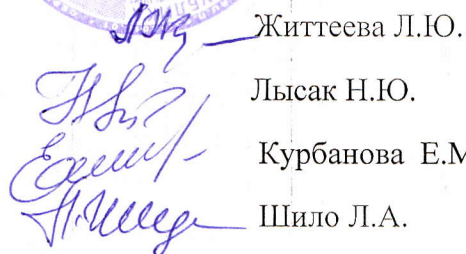 Життеева Л.Ю.
Лысак Н.Ю.
Курбанова Е.М
Шило Л.А.